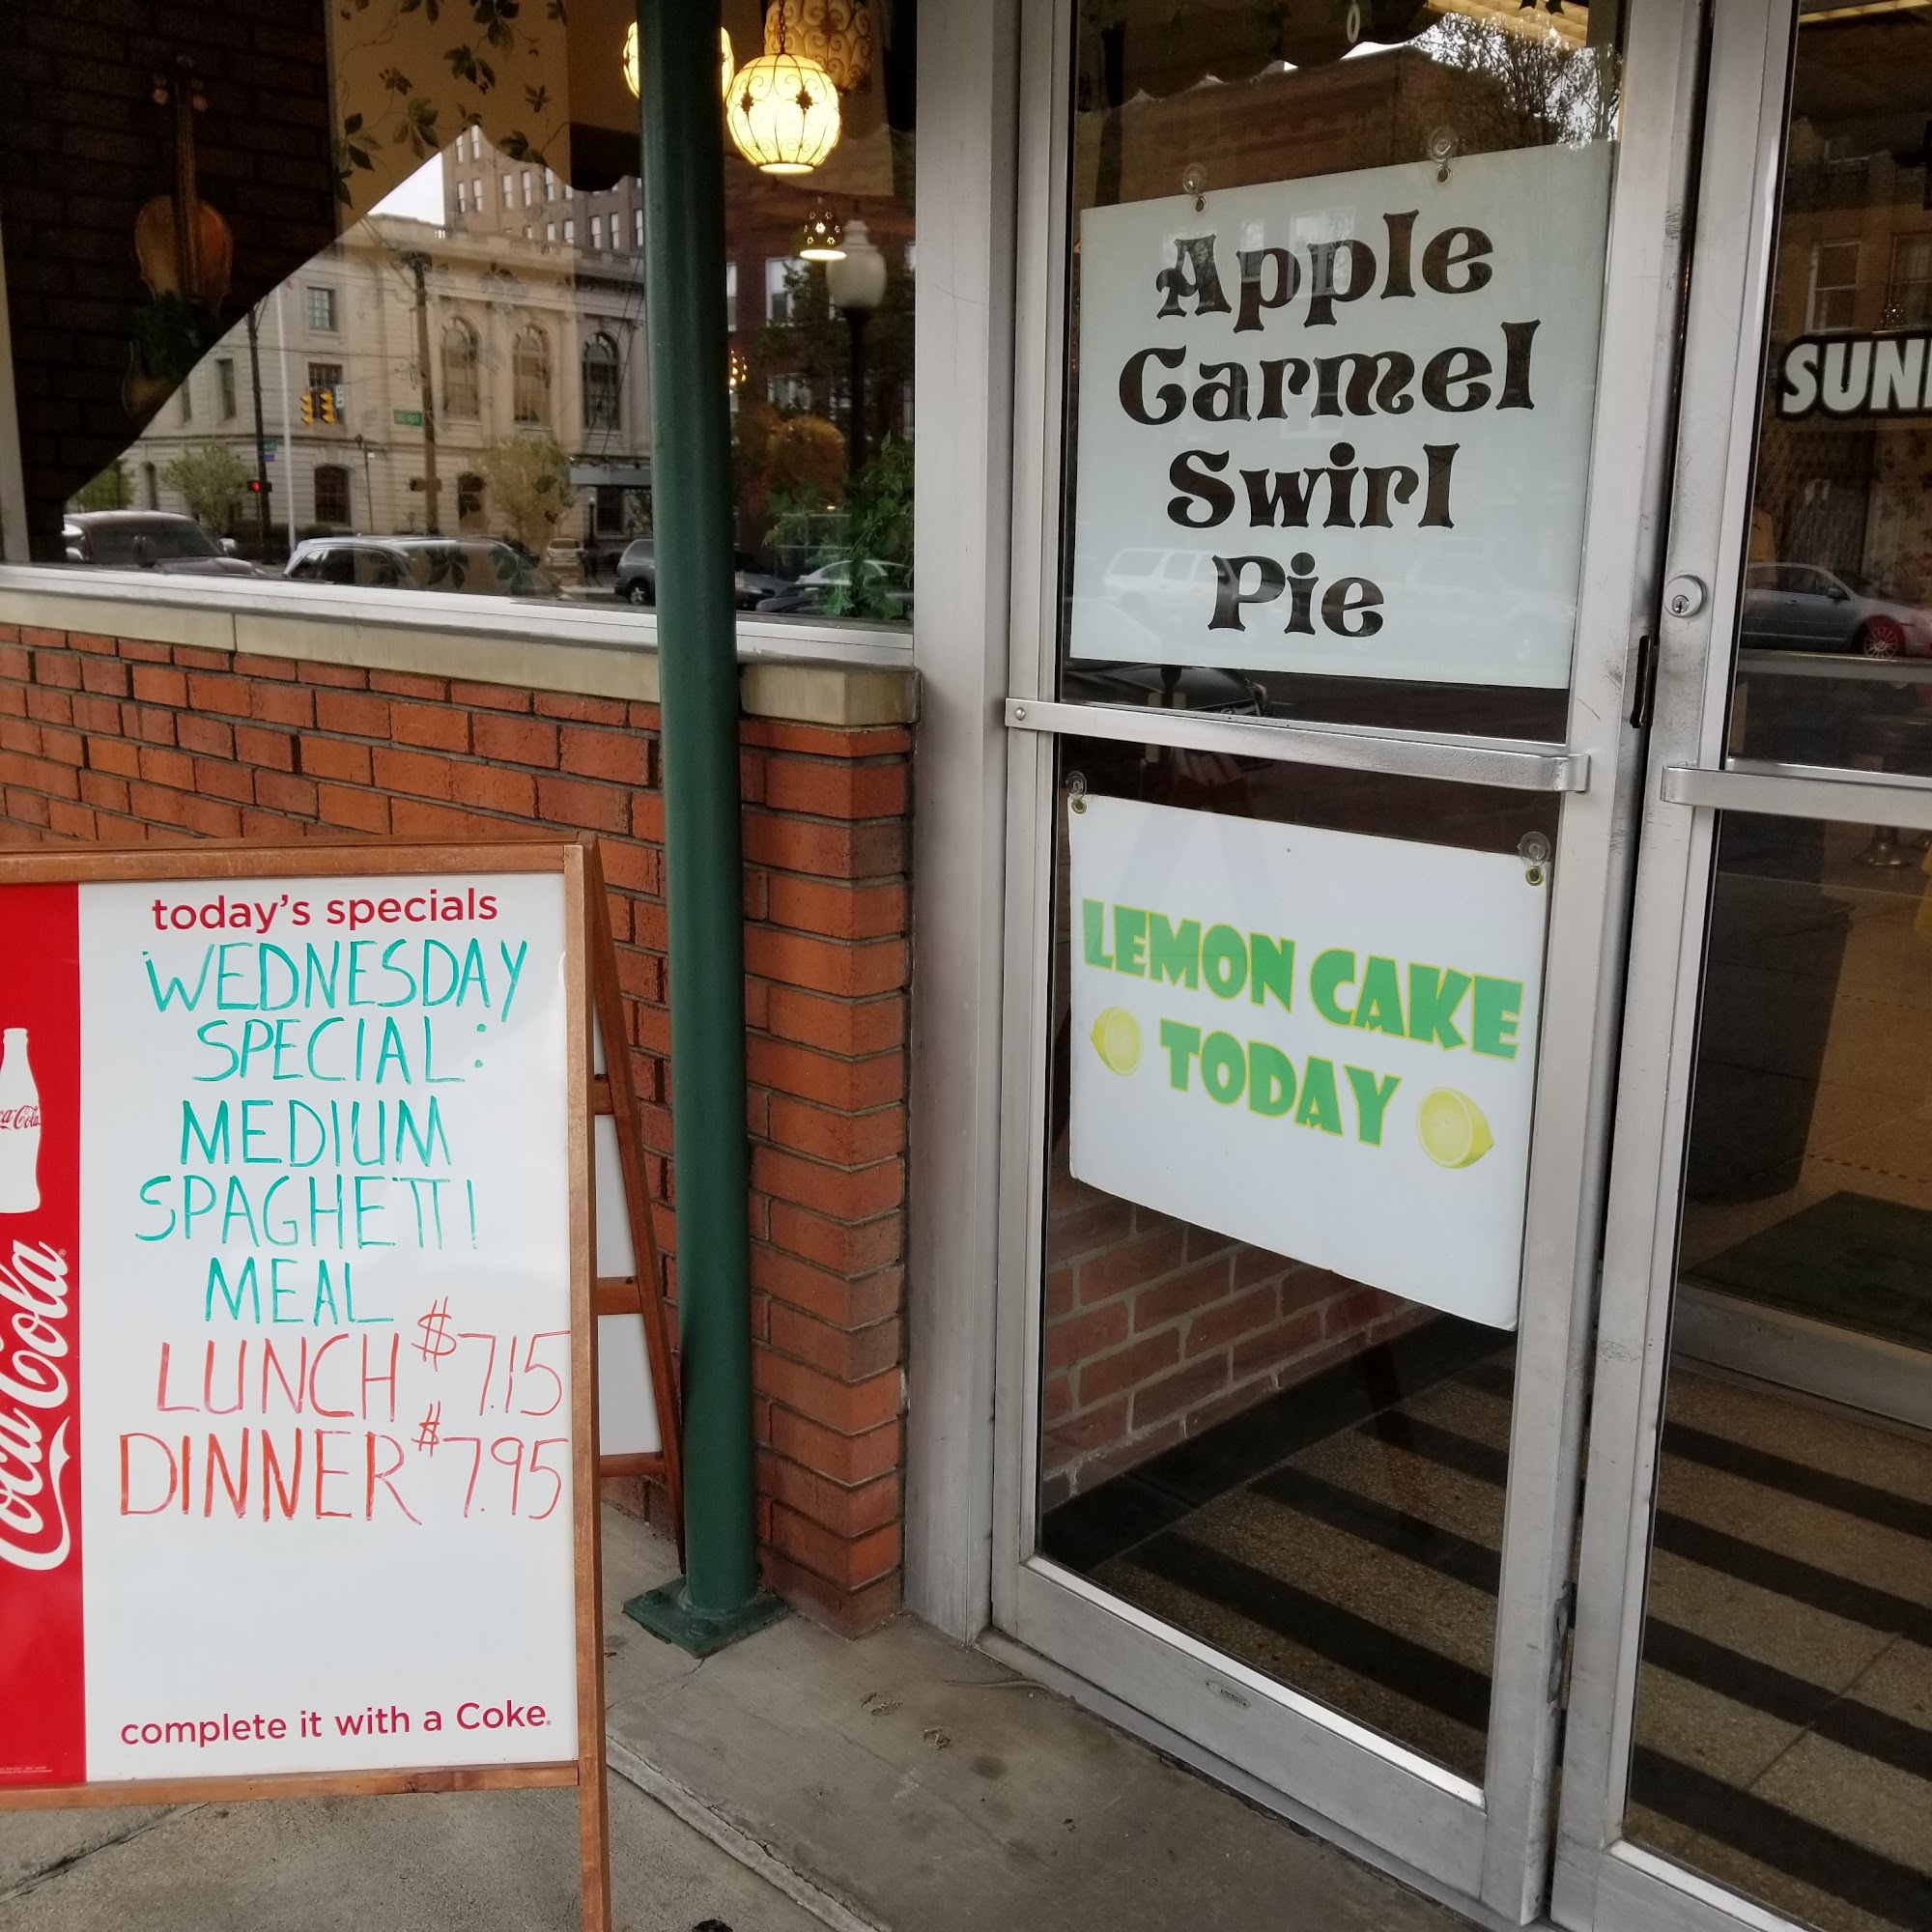 today's specials
WEDNESDAY
SPECIAL:
MEDIUM
SPAGHETTI
MEAL
LUNCH $7.15
DINNER $7.95
complete it with a Coke.
Coca-Cola
Apple
Carmel
Swirl
Pie
LEMON CAKE
TODAY